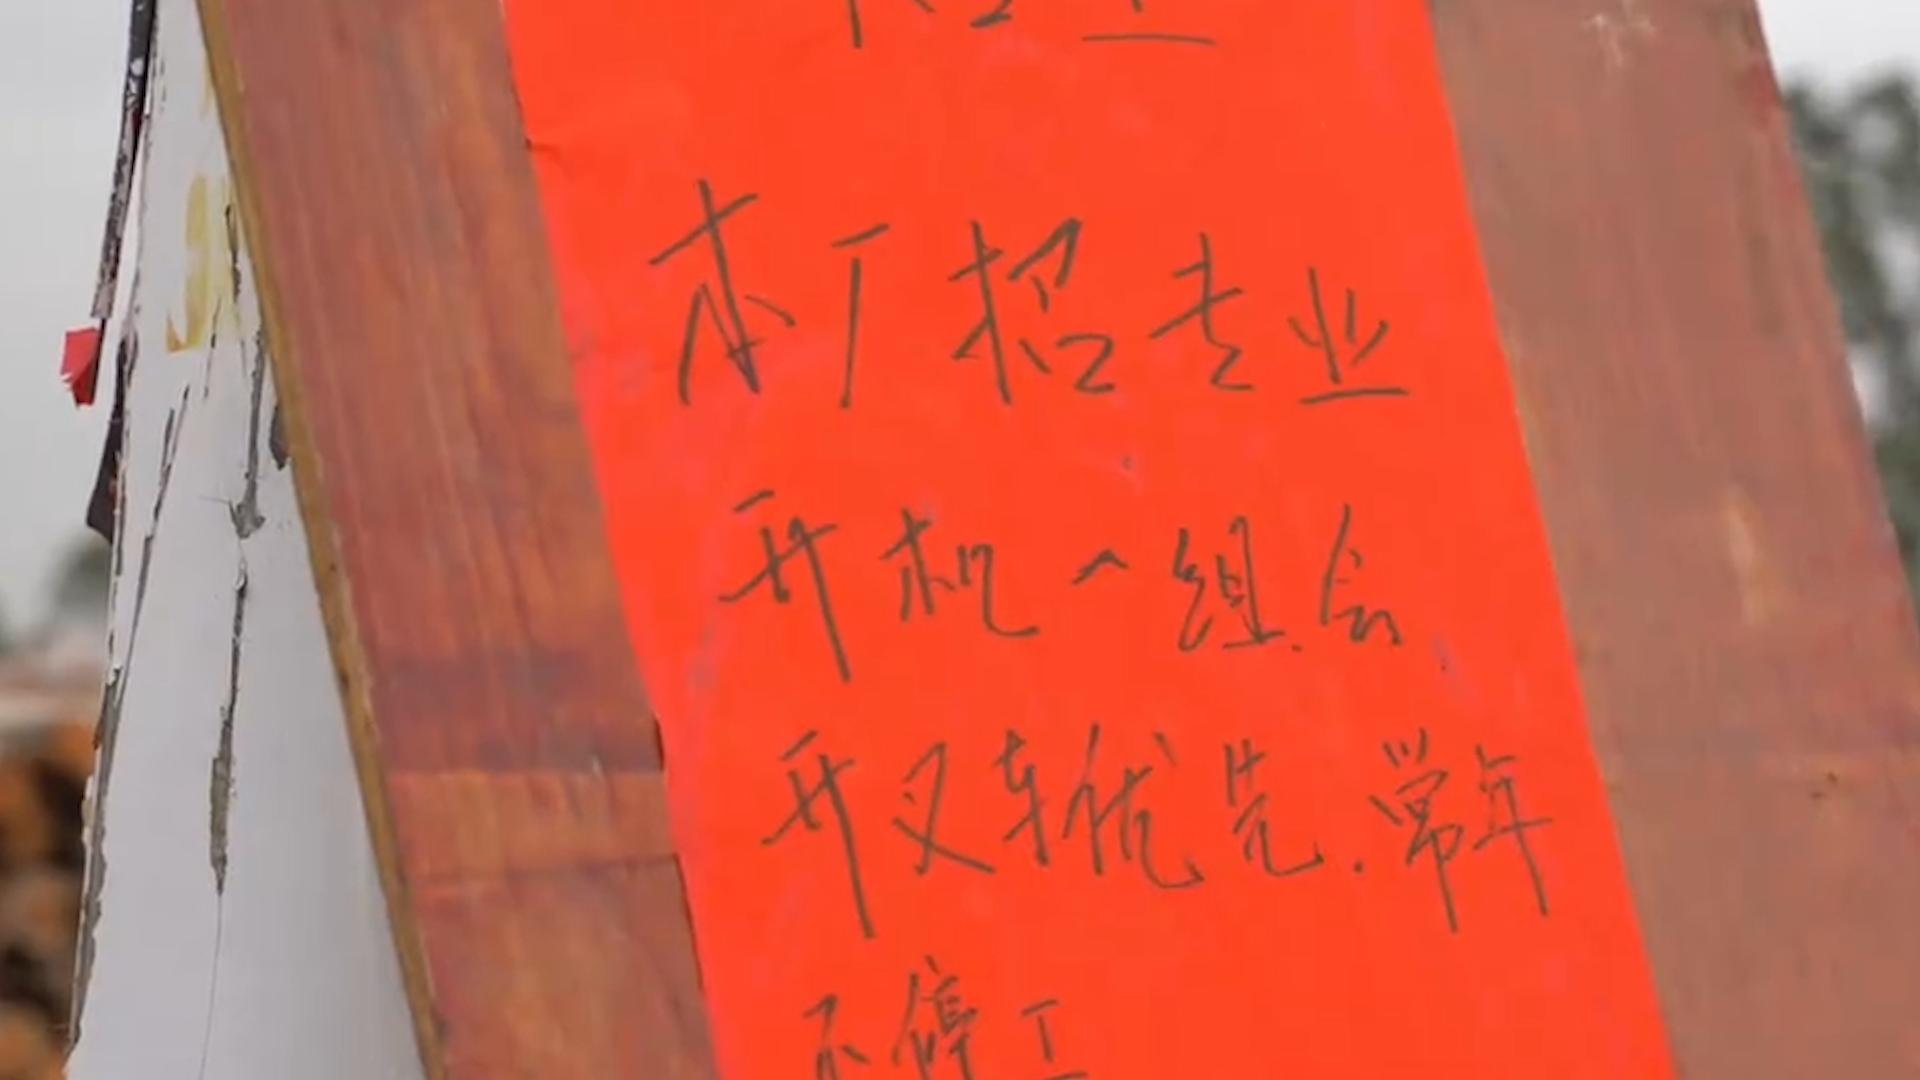 本厂招专业
开机一组.会
开叉车优先.常年
不停工